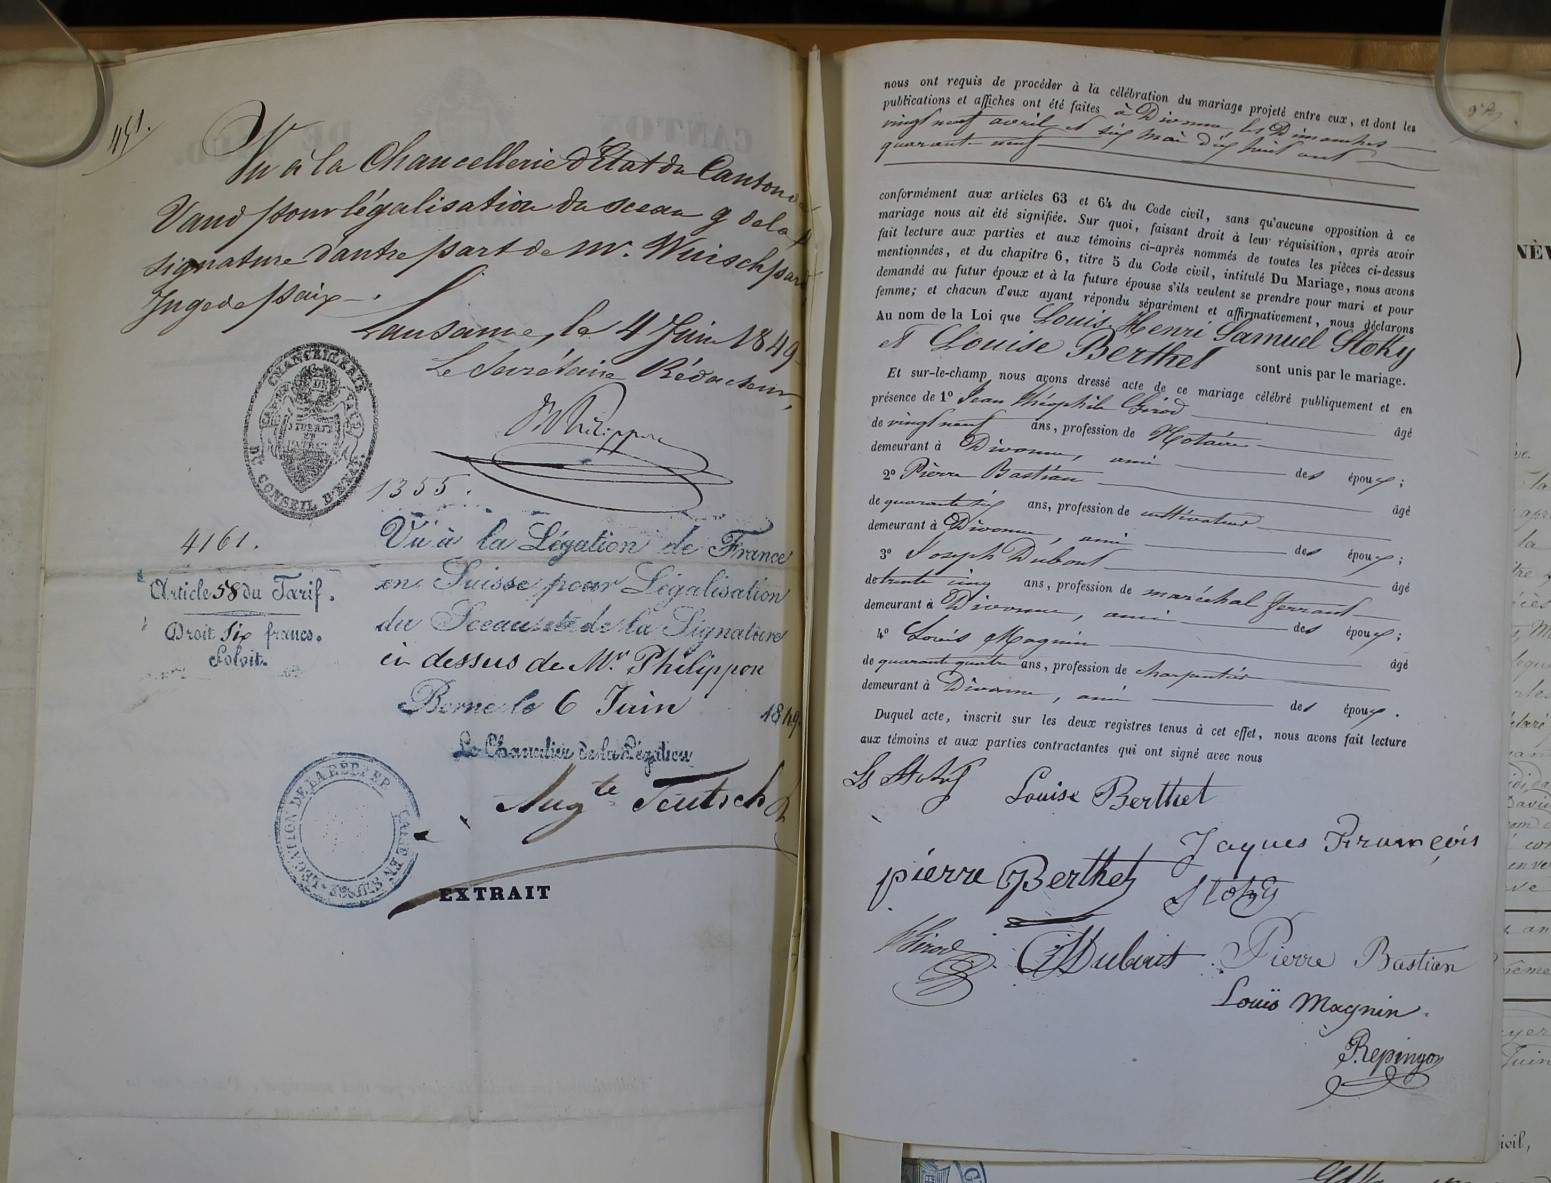 451.
Vu à la Chancellerie d'Etat du Canton de
Vaud pour légalisation du sceau & de la
signature d'autre part de Mr. Wuischpard
Juge de paix.
Lausanne, le 4 Juin 1849
Le Secrétaire Rédacteur,
Philippon
CHANCELLERIE
DU CONSEIL D'ETAT
LIBERTÉ
ET
PATRIE
1355.
4161.
Article 58 du Tarif.
Droit Six francs.
Solvit.
Vu à la Légation de France
en Suisse pour Légalisation
du Sceau et de la Signature
ci dessus de Mr Philippon
Berne le 6 Juin 1849
Le Chancelier de la Légation
Augte Teutsch
LEGATION DE LA REP FR
EN SUISSE
EXTRAIT
nous ont requis de procéder à la célébration du mariage projeté entre eux, et dont les
publications et affiches ont été faites à Divonne les Dimanches
vingt neuf avril et six mai dix huit cent
quarante neuf
conformément aux articles 63 et 64 du Code civil, sans qu'aucune opposition à ce
mariage nous ait été signifiée. Sur quoi, faisant droit à leur réquisition, après avoir
fait lecture aux parties et aux témoins ci-après nommés de toutes les pièces ci-dessus
mentionnées, et du chapitre 6, titre 5 du Code civil, intitulé Du Mariage, nous avons
demandé au futur époux et à la future épouse s'ils veulent se prendre pour mari et pour
femme; et chacun d'eux ayant répondu séparément et affirmativement, nous déclarons
Au nom de la Loi que Louis Henri Samuel Stoky
et Louise Berthet sont unis par le mariage.
Et sur-le-champ nous avons dressé acte de ce mariage célébré publiquement et en
présence de 1° Jean Théophile Girod âgé
de vingt neuf ans, profession de Notaire
demeurant à Divonne, ami des époux;
2° Pierre Bastian âgé
de quarante six ans, profession de cultivateur
demeurant à Divonne, ami des époux;
3° Joseph Dubout âgé
de trente cinq ans, profession de maréchal ferrant
demeurant à Divonne, ami des époux;
4° Louis Magnin âgé
de quarante quatre ans, profession de charpentier
demeurant à Divonne, ami des époux.
Duquel acte, inscrit sur les deux registres tenus à cet effet, nous avons fait lecture
aux témoins et aux parties contractantes qui ont signé avec nous
Ls Stoky Louise Berthet
Jaques François
Stoky
pierre Berthet
Girod Dubout Pierre Bastian
Louis Magnin
Repingon